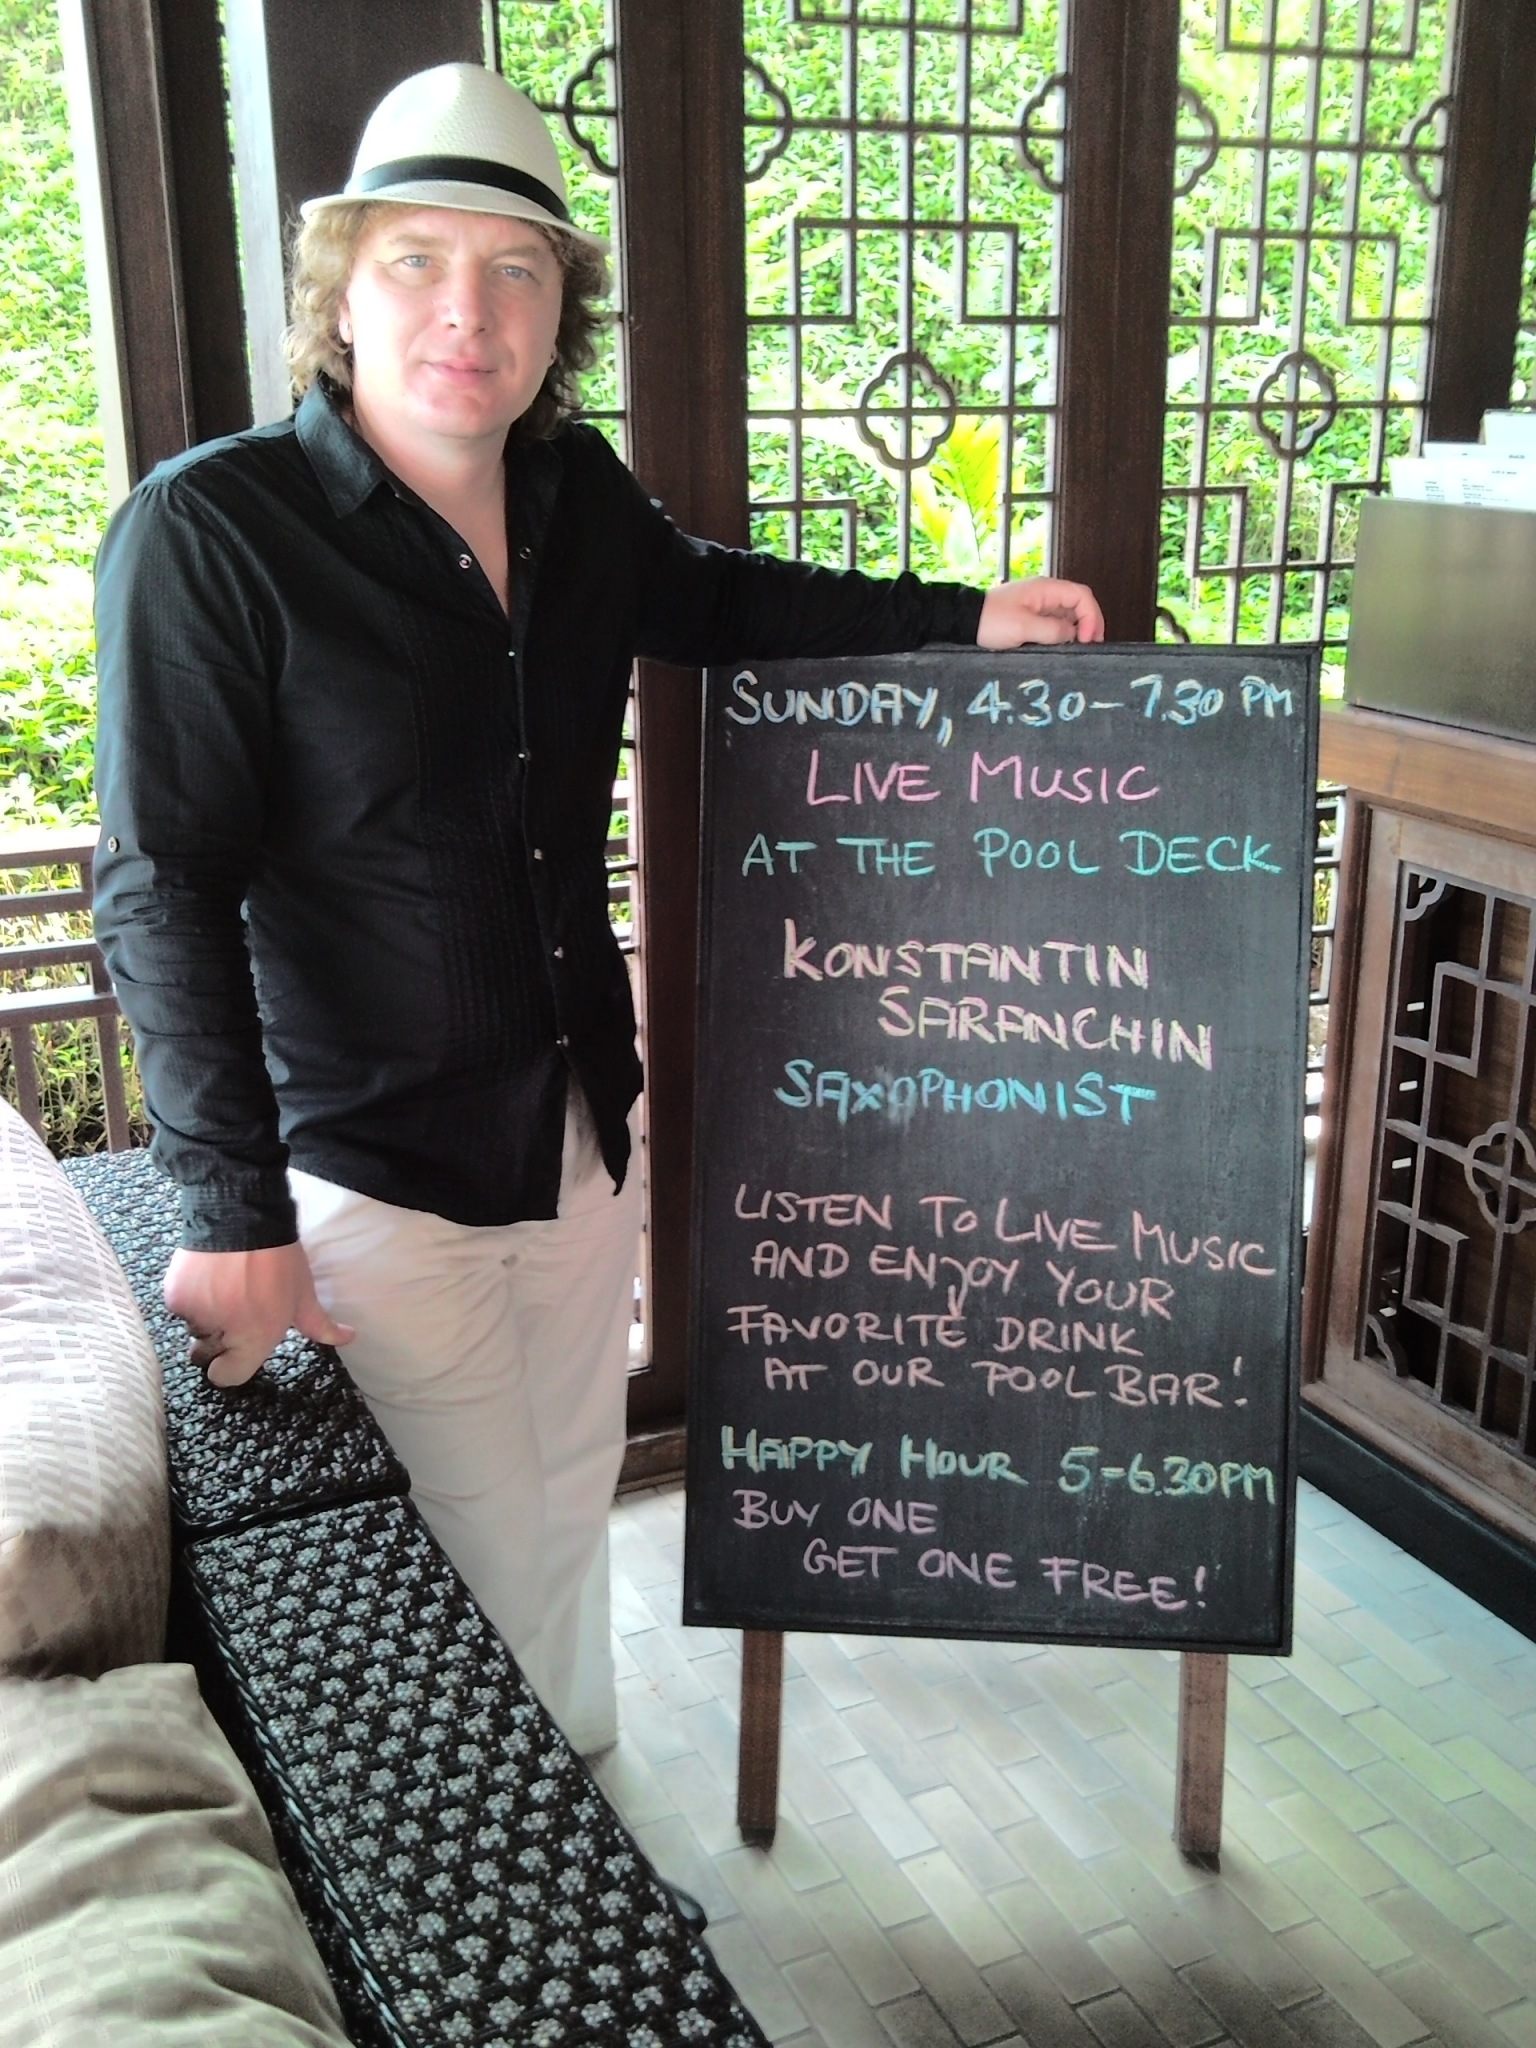 SUNDAY, 4.30-7.30 PM
LIVE MUSIC
AT THE POOL DECK
KONSTANTIN
SARANCHIN
SAXOPHONIST
LISTEN TO LIVE MUSIC
AND ENJOY YOUR
FAVORITE DRINK
AT OUR POOL BAR!
HAPPY HOUR 5-6.30PM
BUY ONE
GET ONE FREE!